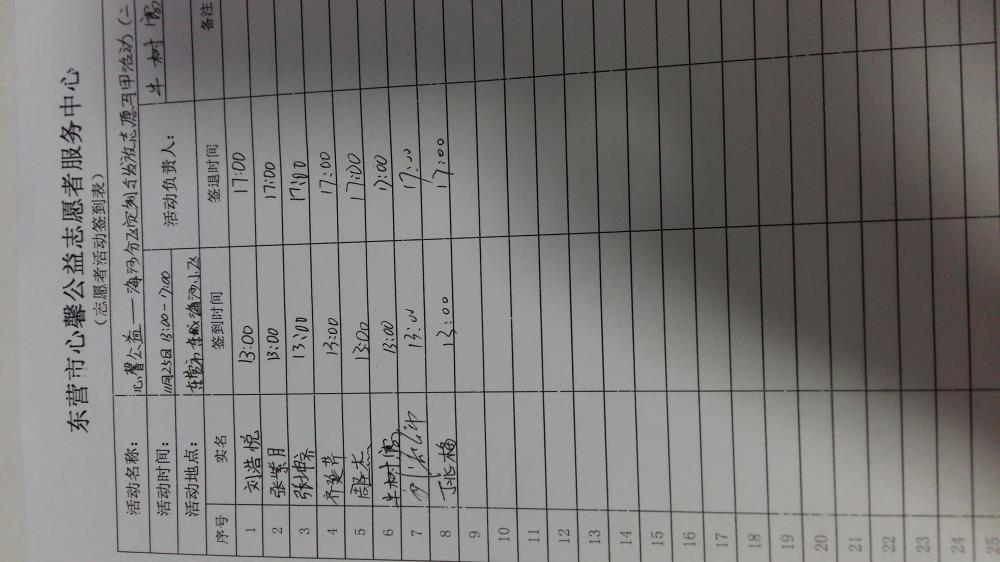 东营市心馨公益志愿者服务中心
（志愿者活动签到表）
活动名称： 心馨公益——海河分队定制与发放志愿马甲活动（二
活动时间： 11月25日 13:00-17:00 活动负责人： 牛树
活动地点： 东营市东城海河小区
序号 实名 签到时间 签退时间 备注
1 刘浩悦 13:00 17:00
2 张紫月 13:00 17:00
3 张坤 13:00 17:00
4 齐延芹 13:00 17:00
5 杰 13:00 17:00
6 牛树 13:00 17:00
7 13:00 17:00
8 丁 梅 13:00 17:00
9
10
11
12
13
14
15
16
17
18
19
20
21
22
23
24
25